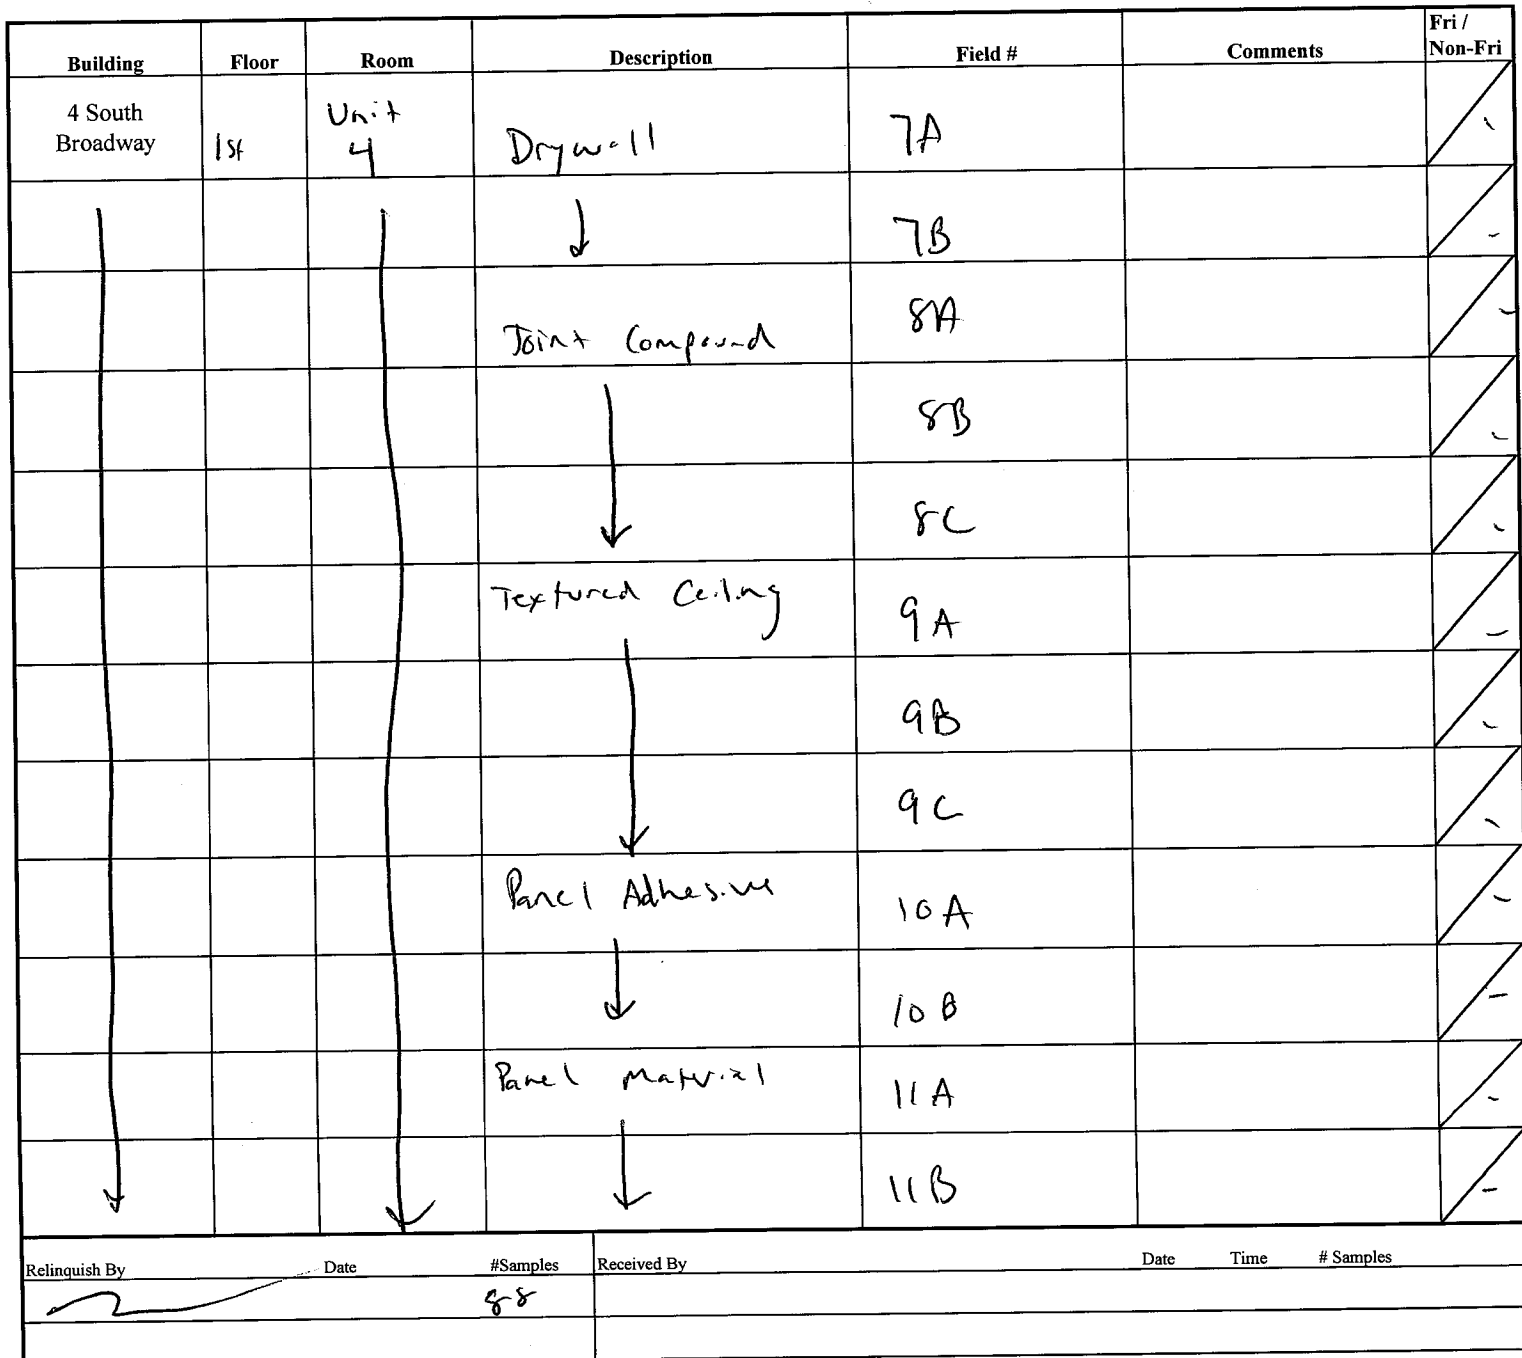 Building Floor Room Description Field # Comments Fri / Non-Fri
4 South Broadway 1st Unit 4 Drywall 7A
7B
Joint Compound 8A
8B
8C
Textured Ceiling 9A
9B
9C
Panel Adhesive 10A
10B
Panel Material 11A
11B
Relinquish By Date #Samples Received By Date Time # Samples
88